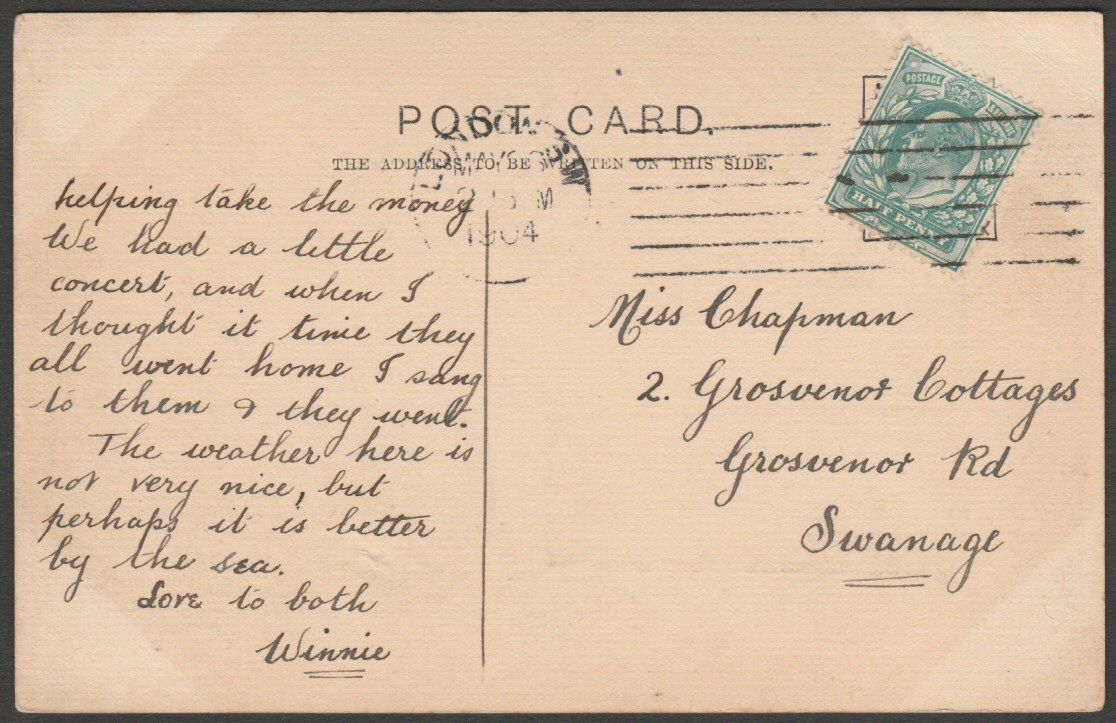 POST CARD.
THE ADDRESS TO BE WRITTEN ON THIS SIDE.
LONDON. S.W
MAY
1904
POSTAGE
HALF PENNY
helping take the money
We had a little
concert, and when I
thought it time they
all went home I sang
to them & they went.
The weather here is
not very nice, but
perhaps it is better
by the sea.
Love to both
Winnie
Miss Chapman
2. Grosvenor Cottages
Grosvenor Rd
Swanage